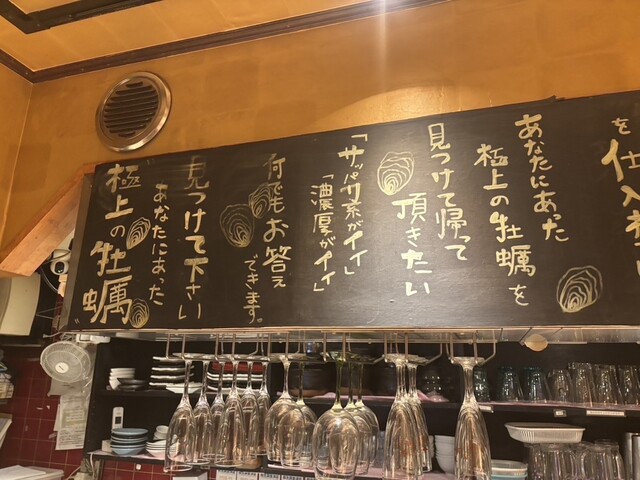 を仕入れ
あなたにあった
極上の牡蠣を
見つけて帰って
頂きたい
「サッパリ系がイイ」
「濃厚がイイ」
何でもお答え
できます。
見つけて下さい
あなたにあった
極上の牡蠣